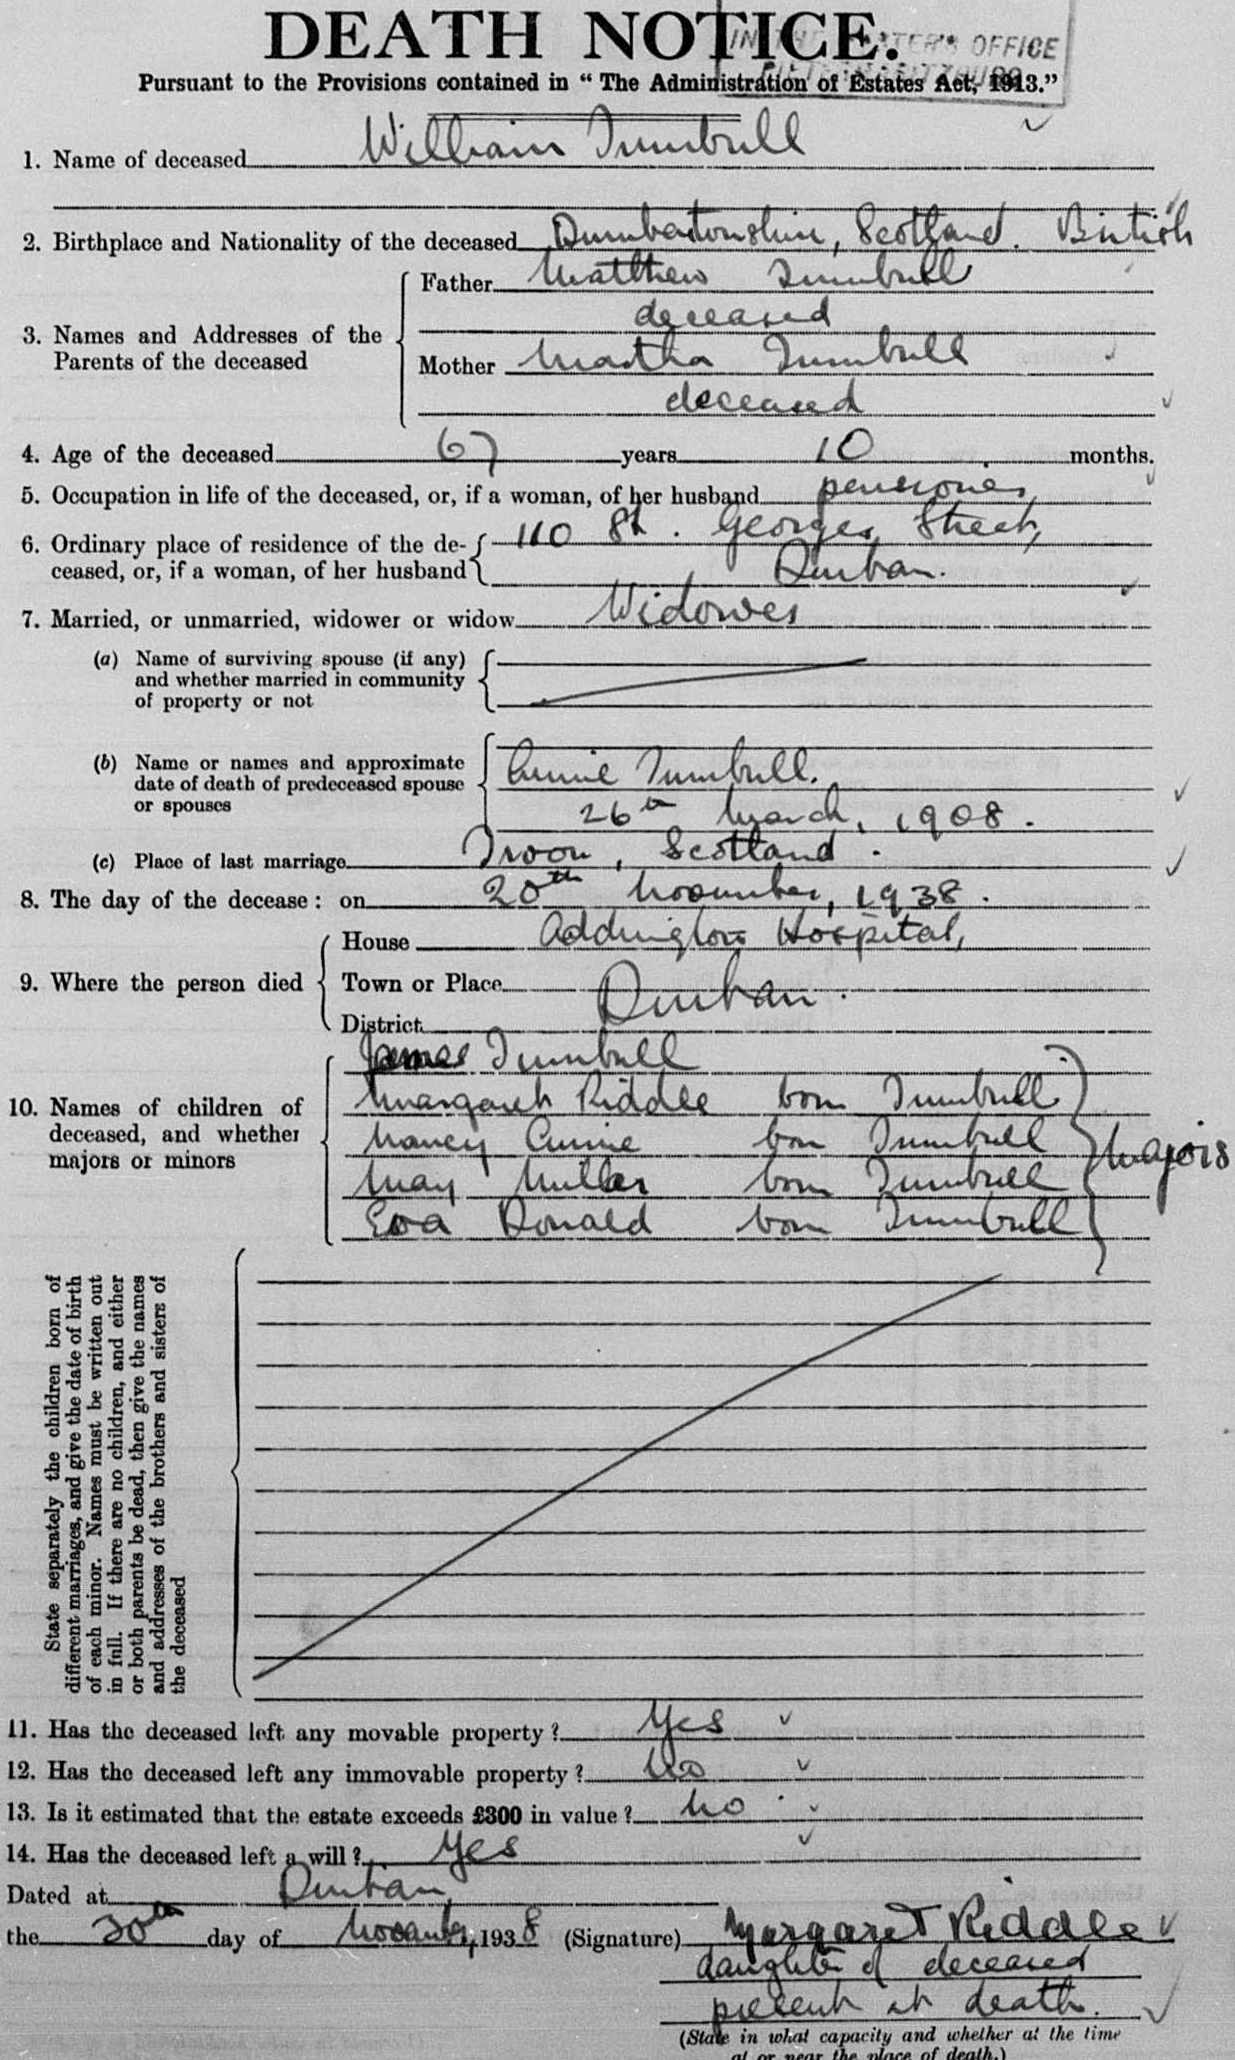 DEATH NOTICE.
IN THE MASTER'S OFFICE
Pursuant to the Provisions contained in “ The Administration of Estates Act, 1913.”
1. Name of deceased William Turnbull
2. Birthplace and Nationality of the deceased Dumbartonshire, Scotland. British
3. Names and Addresses of the Parents of the deceased
Father Matthew Turnbull
deceased
Mother Martha Turnbull
deceased
4. Age of the deceased 67 years 10 months.
5. Occupation in life of the deceased, or, if a woman, of her husband pensioner
6. Ordinary place of residence of the de-
ceased, or, if a woman, of her husband
110 St. Georges Street,
Durban.
7. Married, or unmarried, widower or widow Widower
(a) Name of surviving spouse (if any)
and whether married in community
of property or not
(b) Name or names and approximate
date of death of predeceased spouse
or spouses
Annie Turnbull.
26th March, 1908.
(c) Place of last marriage Troon, Scotland.
8. The day of the decease : on 20th November, 1938.
9. Where the person died
House Addington Hospital,
Town or Place Durban.
District
10. Names of children of
deceased, and whether
majors or minors
James Turnbull
Margaret Riddle born Turnbull
Nancy Annie born Turnbull
May Muller born Turnbull
Eva Donald born Turnbull
Majors
State separately the children born of
different marriages, and give the date of birth
of each minor. Names must be written out
in full. If there are no children, and either
or both parents be dead, then give the names
and addresses of the brothers and sisters of
the deceased
11. Has the deceased left any movable property ? Yes
12. Has the deceased left any immovable property ? No
13. Is it estimated that the estate exceeds £300 in value ? No
14. Has the deceased left a will ? Yes
Dated at Durban
the 30th day of November, 1938 (Signature) Margaret Riddle
daughter of deceased
present at death.
(State in what capacity and whether at the time
at or near the place of death.)